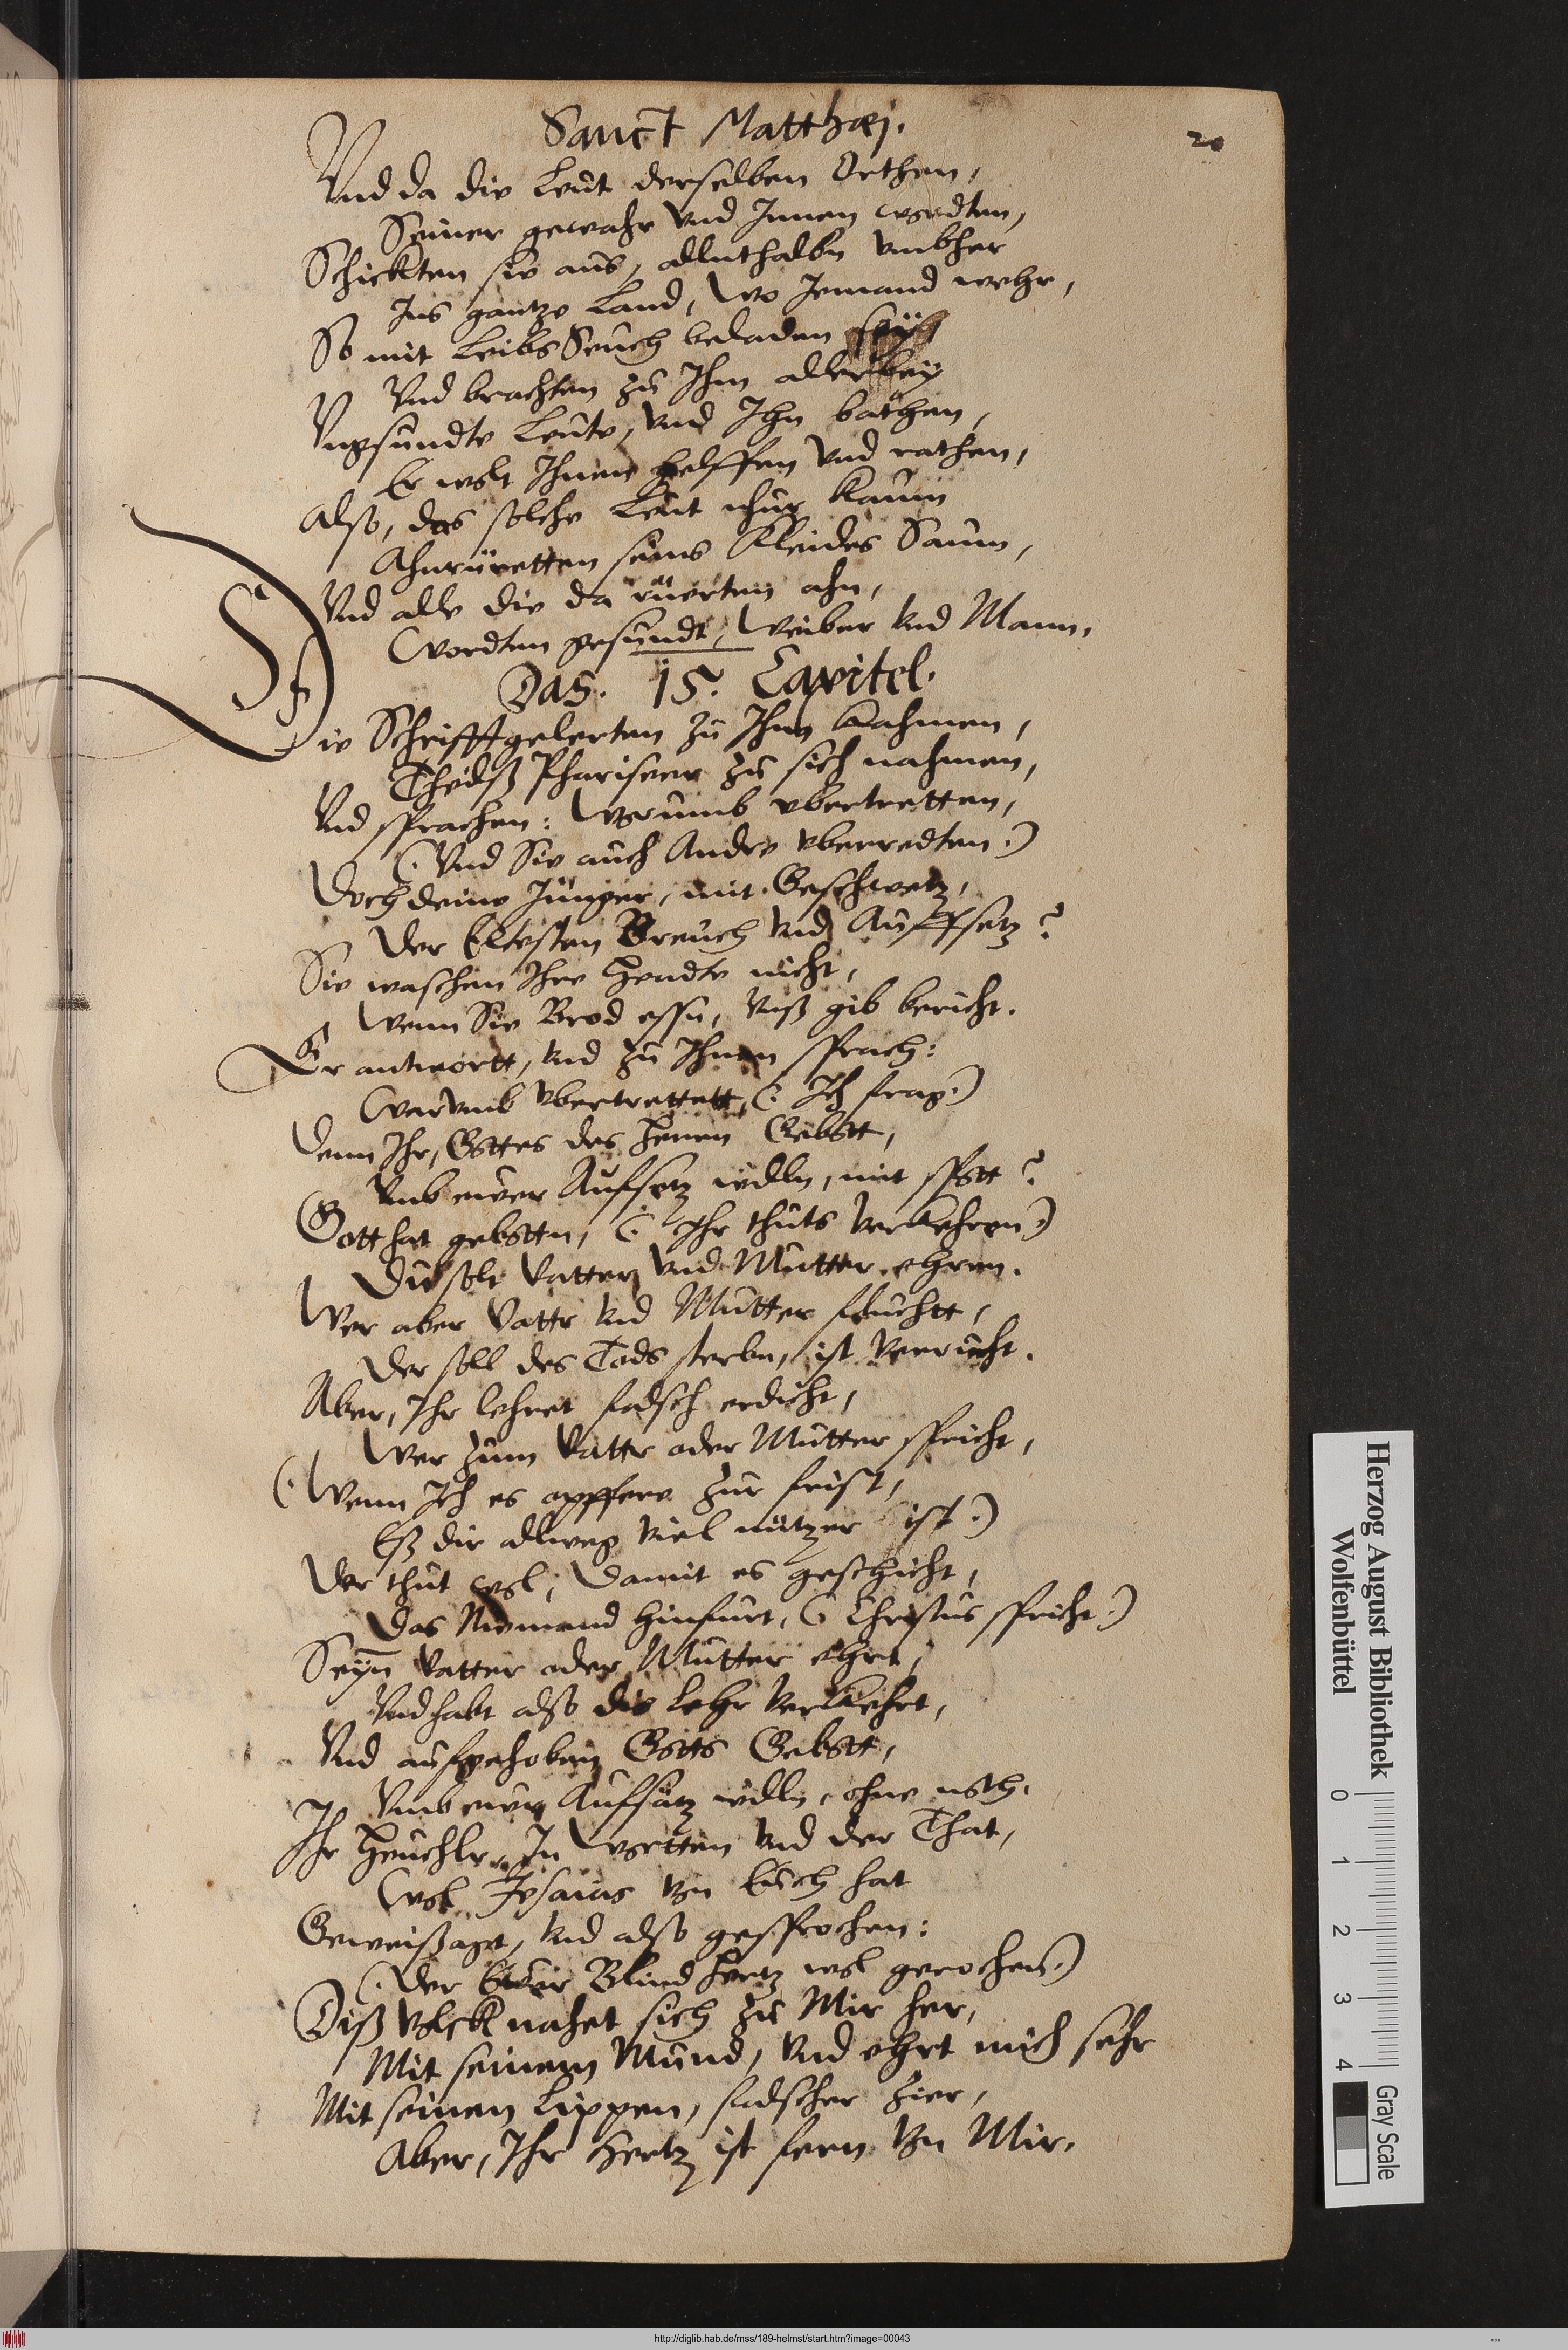 Sanct Matthæj.
20
Vnd da die Leut derselben Orthen,
Seiner gewahr vnd Innen wordten,
Schickten sie aus, allnthalbn vmbher
Ins gantze Land, wo Jemand wehr,
So mit Leibs Seuch beladen sey
Vnd brachten zu Ihm allerley
Vngsundte Leute, vnd Ihn bathen,
Er wolt Ihnen helffen vnd rathen,
Also, das solche Leut nhur kaum
Ahnrüretten seins Kleides Saum,
Vnd alle die da rüerten ahn,
Wordten gesundt, Weiber vnd Mann.
Das. 15. Capitel.
Die Schrifftgelerten zu Ihm kahmen,
Theils Phariseer zu sich nahmen,
Vnd sprachen: Worumb vbertretten,
(: Vnd Sie auch Andre vberredten :)
Doch deine Jünger, mit Geschwetz,
Der Eltesten Breuch vnd Auffsetz?
Sie waschen Ihre Hendte nicht,
Wenn Sie Brod essn, vnß gib bericht.
Er antwortt, vnd zu Ihnen sprach:
Warumb vbertrettett, (: Ich frag :)
Denn Ihr, Gottes des Herren Gebott,
Vmb euer Aufsetz willn, mit spott?
Gott hat gebottn, (: Ihr thuts verkehren :)
Du solt Vatter vnd Mutter ehren.
Wer aber Vattr vnd Mutter fluchtt,
Der soll des Tods sterbn, ist verrucht.
Aber, Ihr lehret falsch erdicht,
Wer zum Vattr oder Mutter spricht,
(: Wenn Ich es opffere zur frist,
Eß dir allweg viel nützer ist :)
Der thut wol, Damit es geschicht,
Das Niemand hinfurt, (: Christus spricht :)
Seyn Vatter oder Mutter ehrt,
Vnd habt also die Lehr verkehrt,
Vnd aufgehoben Gotts Gebott,
Vmb euer Aufsätz willn, ohne noth.
Ihr Heuchlr, In Wortten vnd der That,
Wol Jesaias von Euch hat
Geweißagt, vnd also gesprochen:
(: Der Euer Blind Hertz wol gerochen :)
Diß Volck nahet sich zu Mir her,
Mit seinem Mund, vnd ehrt mich sehr
Mit seinen Lippen, falscher Zier,
Aber, Ihr Hertz ist fern von Mir.
Herzog August Bibliothek
Wolfenbüttel
0 1 2 3 4
Gray Scale
http://diglib.hab.de/mss/189-helmst/start.htm?image=00043